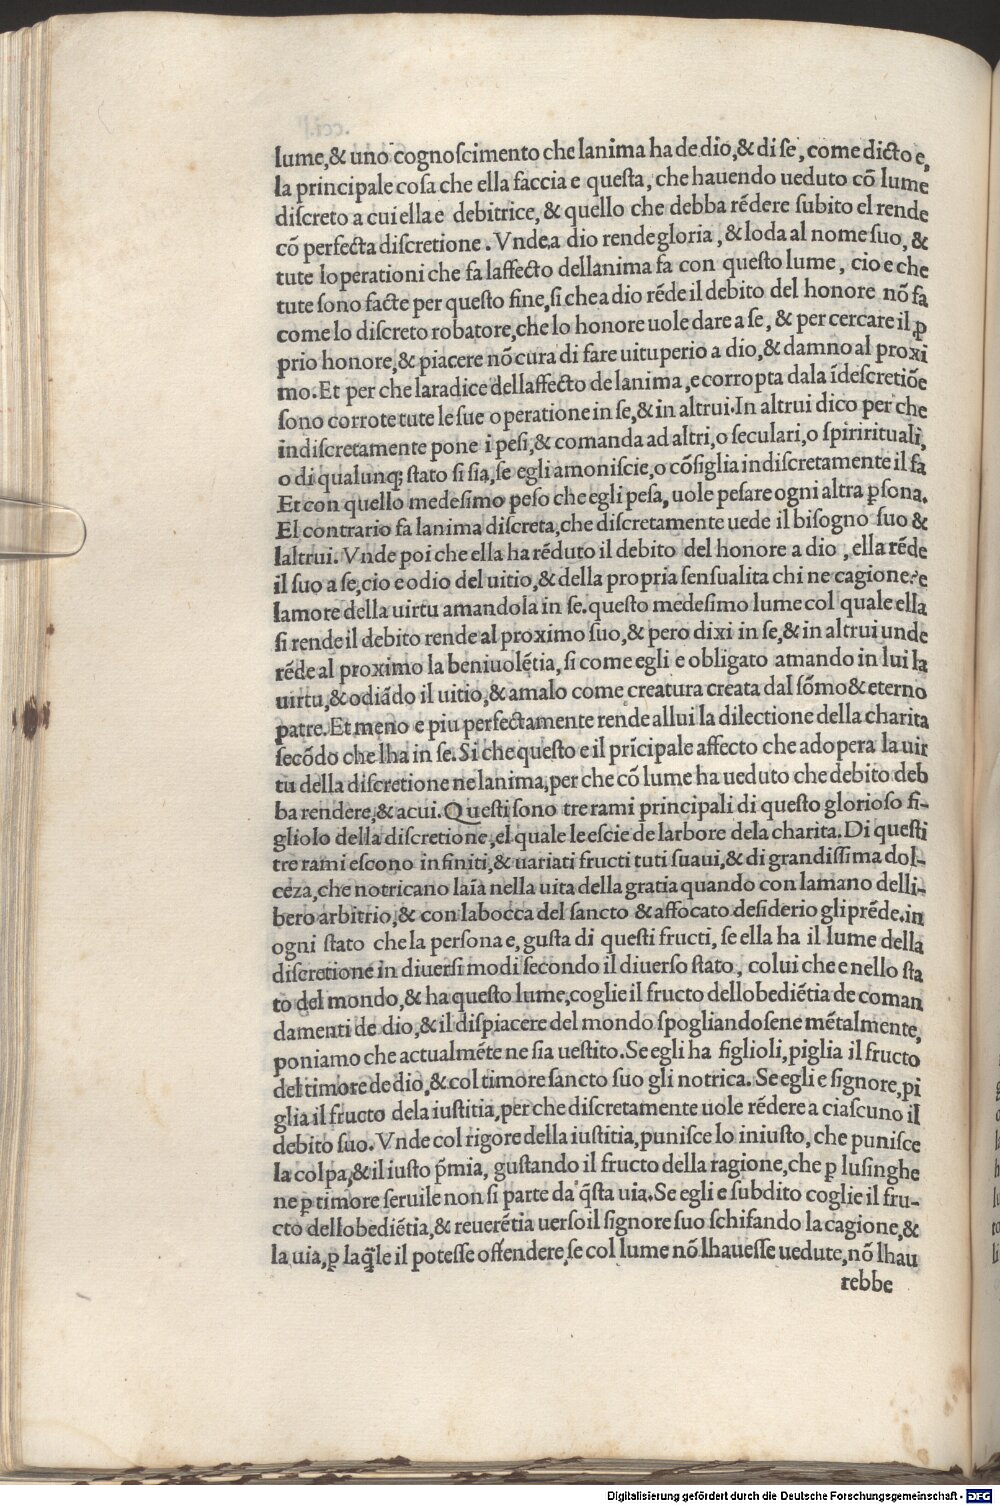 lume,& uno cognoſcimento che lanima ha de dio,& di ſe, come dicto e,
la principale coſa che ella faccia e queſta, che hauendo ueduto cō lume
diſcreto a cui ella e debitrice, & quello che debba rēdere ſubito el rende
cō perfecta diſcretione. Vnde.a dio rende gloria, & loda al nome ſuo, &
tute loperationi che fa laffecto dellanima fa con queſto lume, cio e che
tute ſono facte per queſto fine,ſi che a dio rēde il debito del honore nō fa
come lo diſcreto robatore,che lo honore uole dare a ſe, & per cercare il ꝓ
prio honore,& piacere nō cura di fare uituperio a dio,& damno al proxi
mo. Et per che laradice dellaffecto de lanima,e corropta dala īdeſcretiōe
ſono corrote tute le ſue operatione in ſe,& in altrui.In altrui dico per che
indiſcretamente pone i peſi,& comanda ad altri,o ſeculari,o ſpirirituali,
o di qualunq; ſtato ſi ſia,ſe egli amoniſcie,o cōſiglia indiſcretamente il fa
Et con quello medeſimo peſo che egli peſa, uole peſare ogni altra ꝑſona.
El contrario fa lanima diſcreta,che diſcretamente uede il biſogno ſuo &
laltrui. Vnde poi che ella ha rēduto il debito del honore a dio, ella rēde
il ſuo a ſe,cio e odio del uitio,& della propria ſenſualita chi ne cagione?e
lamore della uirtu amandola in ſe.queſto medeſimo lume col quale ella
ſi rende il debito rende al proximo ſuo,& pero dixi in ſe,& in altrui unde
rēde al proximo la beniuolētia, ſi come egli e obligato amando in lui la
uirtu,& odiādo il uitio,& amalo come creatura creata dal ſōmo & eterno
patre. Et meno e piu perfectamente rende allui la dilectione della charita
ſecōdo che lha in ſe. Si che queſto e il prīcipale affecto che adopera la uir
tu della diſcretione ne lanima,per che cō lume ha ueduto che debito deb
ba rendere,& acui. Queſti ſono tre rami principali di queſto glorioſo fi-
gliolo della diſcretione,el quale le eſcie de larbore dela charita. Di queſti
tre rami eſcono infiniti,& uariati fructi tuti ſuaui,& di grandiſſima dol-
ceza,che notricano laīa nella uita della gratia quando con lamano delli-
bero arbitrio,& con labocca del ſancto & affocato deſiderio gli prēde.in
ogni ſtato che la perſona e, guſta di queſti fructi, ſe ella ha il lume della
diſcretione in diuerſi modi ſecondo il diuerſo ſtato, colui che e nello ſta
to del mondo,& ha queſto lume,coglie il fructo dellobediētia de coman
damenti de dio,& il diſpiacere del mondo ſpogliandoſene mētalmente,
poniamo che actualmēte ne ſia ueſtito. Se egli ha figlioli, piglia il fructo
del timore de dio,& col timore ſancto ſuo gli notrica. Se egli e ſignore,pi
glia il fructo dela iuſtitia,per che diſcretamente uole rēdere a ciaſcuno il
debito ſuo. Vnde col rigore della iuſtitia,puniſce lo iniuſto, che puniſce
la colpa,& il iuſto p̄mia, guſtando il fructo della ragione,che ꝑ luſinghe
ne ꝑ timore ſeruile non ſi parte da q̄ſta uia.Se egli e ſubdito coglie il fru-
cto dellobediētia,& reuerētia uerſo il ſignore ſuo ſchifando la cagione,&
la uia,ꝑ laq̄le il poteſſe offendere,ſe col lume nō lhaueſſe uedute,nō lhau
rebbe
Digitalisierung gefördert durch die Deutsche Forschungsgemeinschaft - DFG